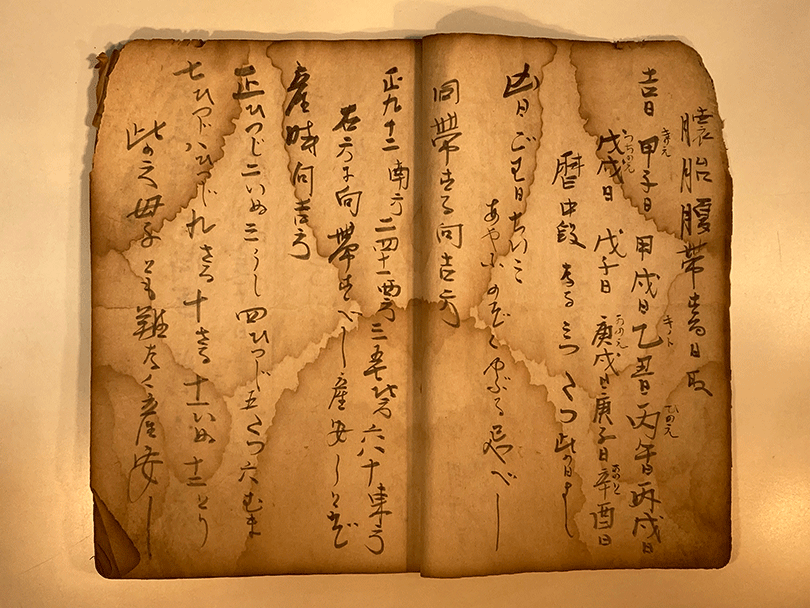 懐胎腹帯吉日取
吉日 甲子日 甲戌日 乙丑日 丙午日 丙戌日
戊戌日 戊子日 庚戌日 庚子日 辛酉日
暦中段 なる みつ たつ 此の日よし
凶日
あやふ のぞく やぶる 忌べし
同帯する向吉方
正九十二 南方 二四十一 西方 三五七 六八十 東方
右方に向帯すべし産安しとぞ
産時向吉方
正ひつじ 二いぬ 三うし 四ひつじ 五たつ 六むま
七ひつじ 八ひつじ 九さる 十さる 十一いぬ 十二とり
此の方母子とも難なく産安し